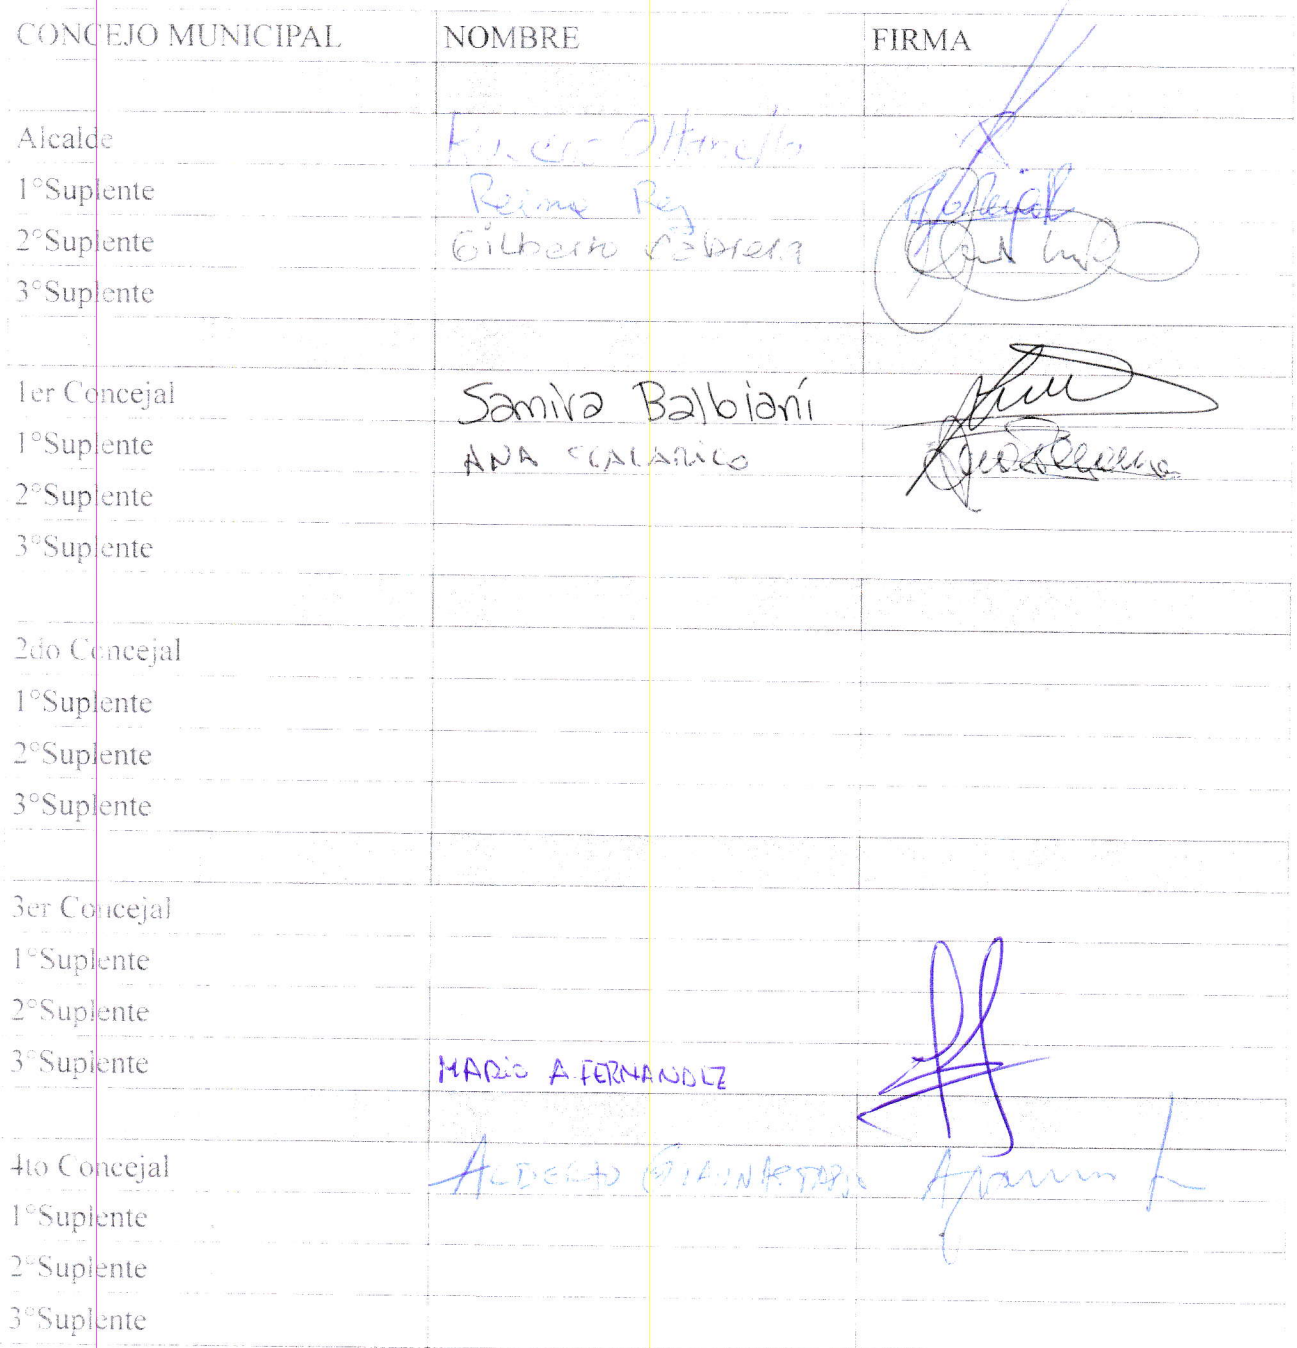 CONCEJO MUNICIPAL NOMBRE FIRMA
Alcalde
1°Suplente Reime Rey
2°Suplente Gilberto Cabrera
3°Suplente
1er Concejal Samira Balbiani
1°Suplente ANA
2°Suplente
3°Suplente
2do Concejal
1°Suplente
2°Suplente
3°Suplente
3er Concejal
1°Suplente
2°Suplente
3°Suplente MARIO A. FERNANDEZ
4to Concejal
1°Suplente
2°Suplente
3°Suplente